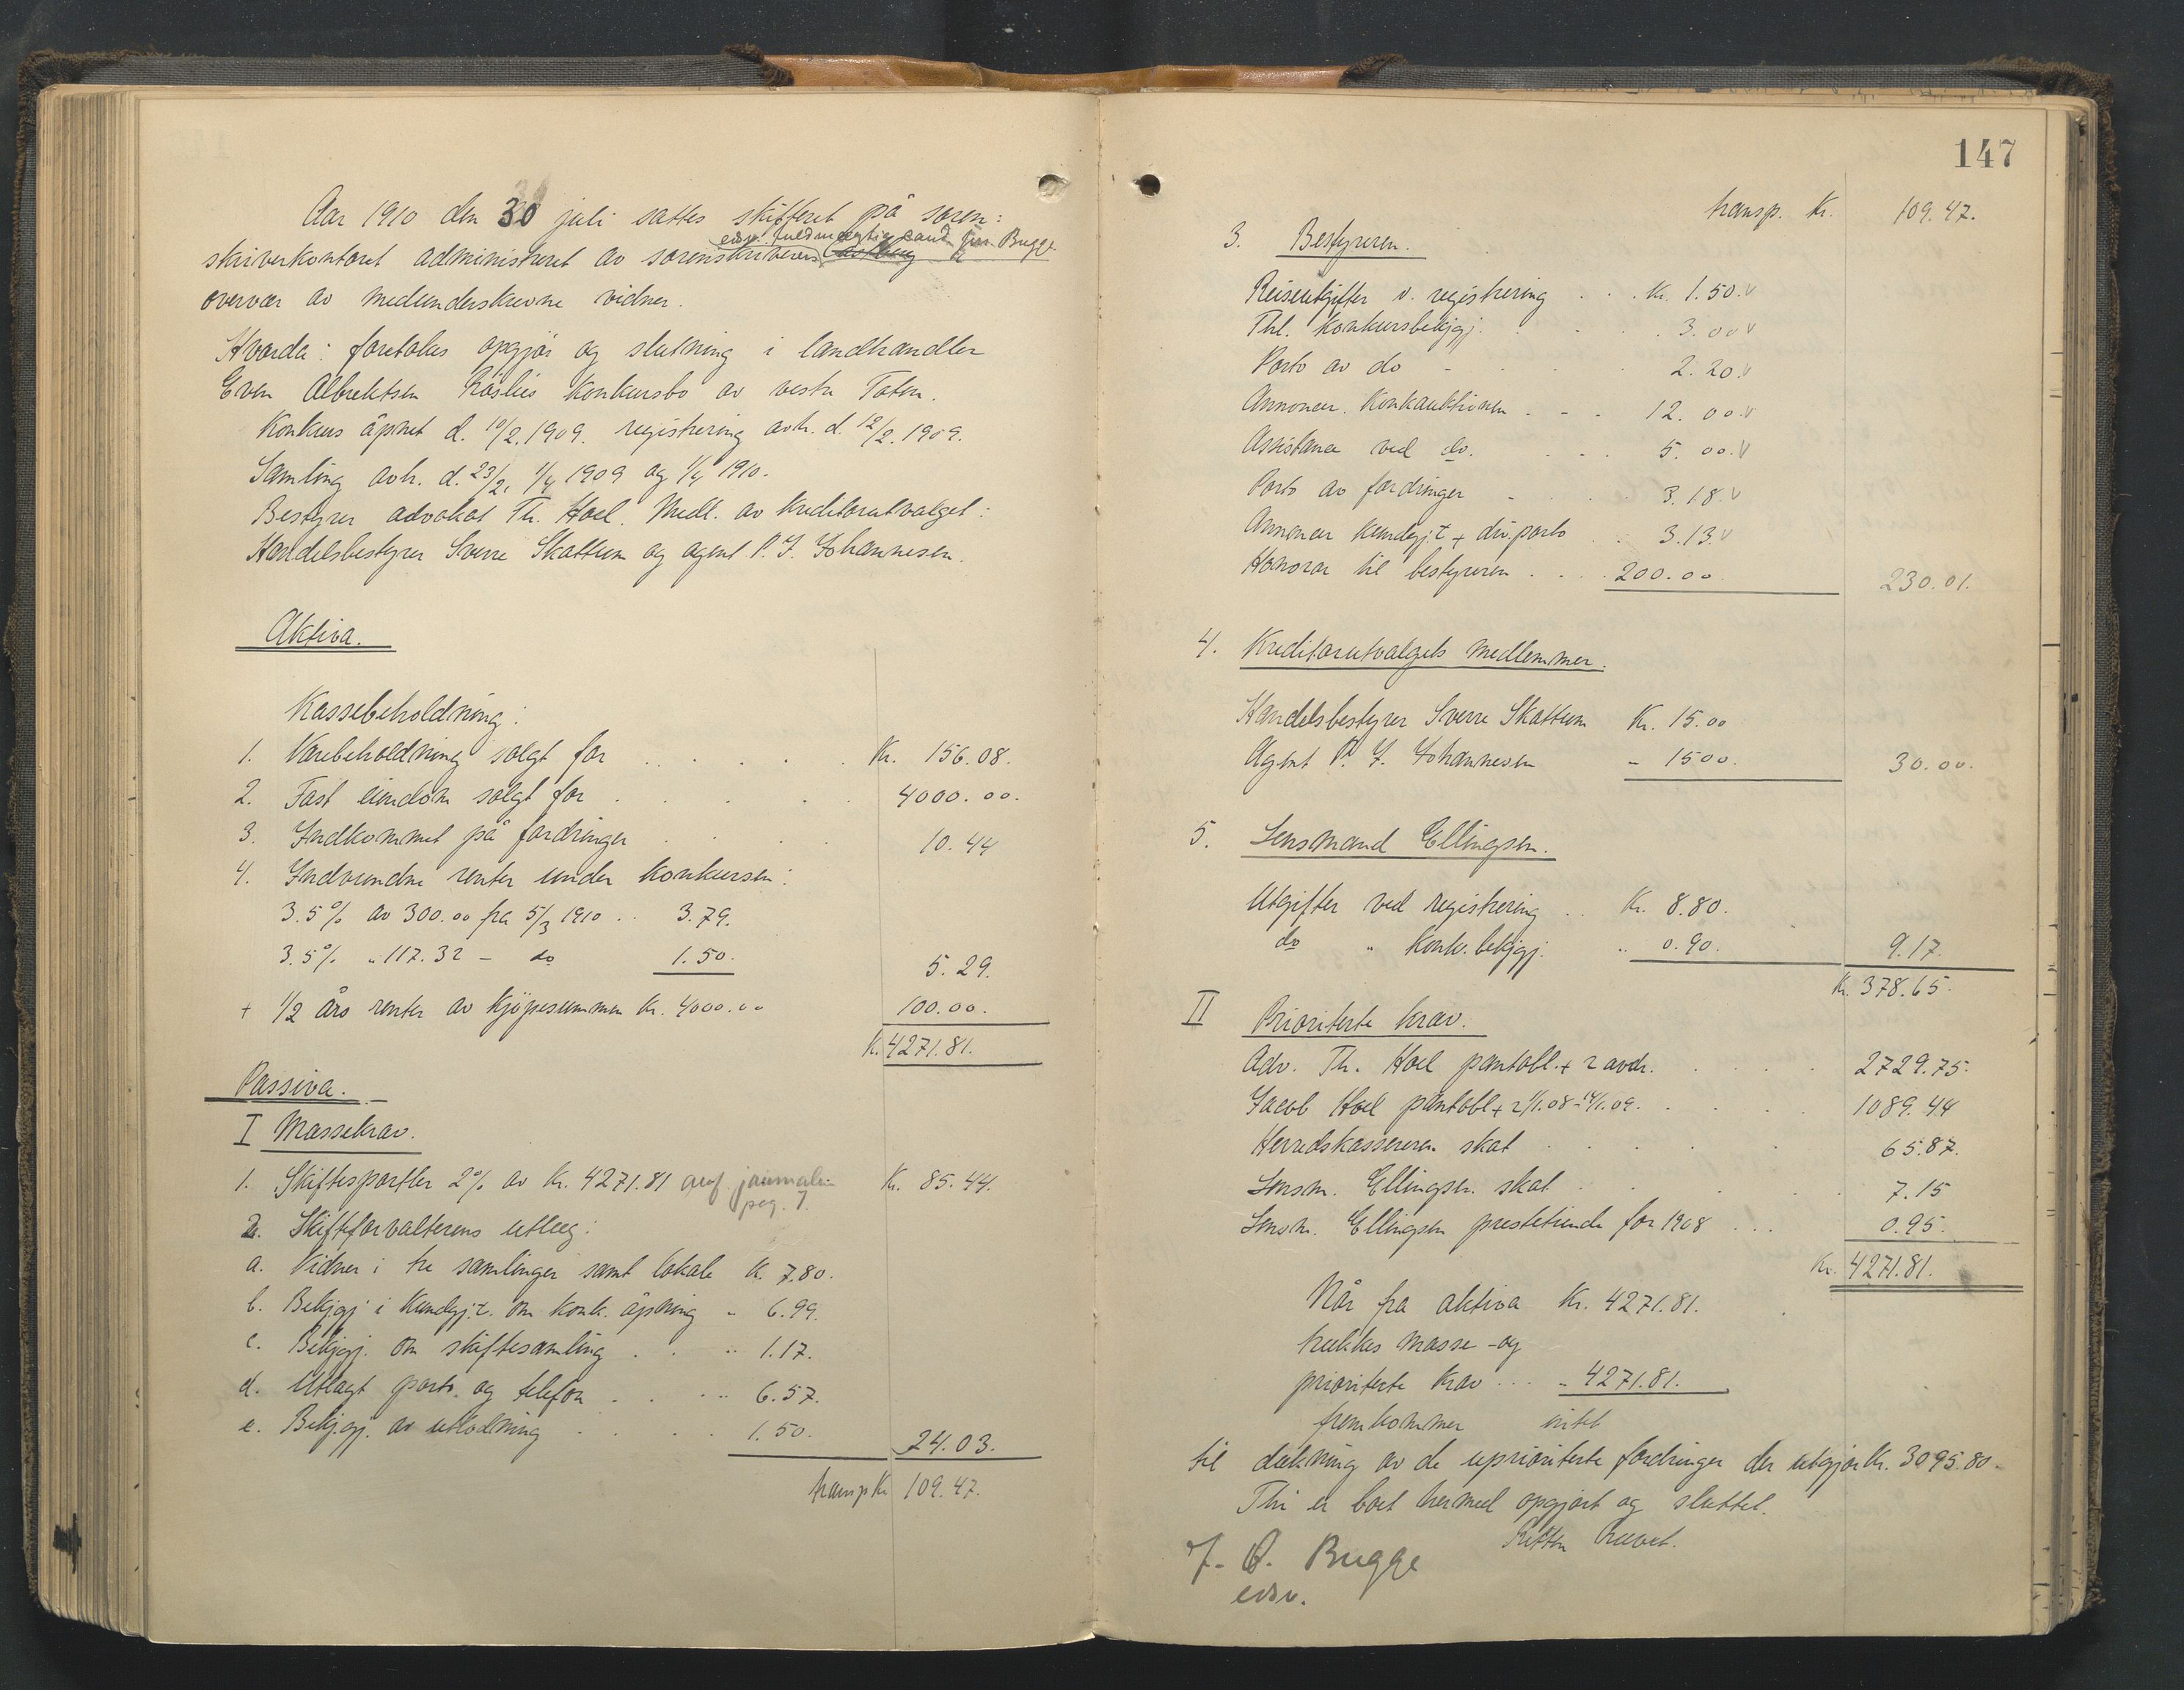 Aar 1910 den 30 juli sattes skifteret på soren:
edsv. fuldmægtig cand jur Bugge
skriverkontoret administreret av sorenskriverens i
overvær av medunderskrevne vidner.
Hvorda: foretokes opgjør og slutning i landhandler
Even Albrektsen Råslies konkursbo av vestre Toten.
Konkurs åpnet d. 10/2. 1909. registrering avh. d. 12/2. 1909.
Samling avh. d. 23/2, 1/4 1909 og 1/4 1910.
Bestyrer advokat Th. Hoel. Medl. av kreditorutvalget:
Handelsbestyrer Sverre Skattum og agent P. J. Johannesen.
Aktiva.
Kassebeholdning:
1. Varebeholdning solgt for . . . . . Kr. 156.08.
2. Fast eiendom solgt for . . . . 4000.00.
3. Indkommet på fordringer . . . . 10.44
4. Indvundne renter under konkursen:
3.5% av 300.00 fra 5/3 1910 . . 3.79.
3.5% " 117.32 - do 1.50. 5.29.
+ 1/2 års renter av kjøpesummen Kr. 4000.00 100.00.
K. 4271.81.
Passiva.
I Massekrav.
1. Skiftesportler 2% av Kr. 4271.81 anf. journalen Kr. 85.44.
pag. 7.
2. Skifteforvalterens utlæg:
a. Vidner i tre samlinger samt lokale K. 7.80.
b. Bekjgj i Kundgj.t. om konk. åpning " 6.99.
c. Bekjgj. om skiftesamling . . " 1.17.
d. Utlagt porto og telefon . . . " 6.57.
e. Bekjgj. av utlodning . . . . 1.50. 24.03.
transp Kr 109.47.
147
transp. Kr. 109.47.
3. Bestyreren.
Reiseutgifter v. registrering . . . Kr. 1.50.v
Thl. konkursbekjgj. . . . 3.00v
Porto av do - . . . 2.20.v
Annoncer. Konkauktionen . - . 12.00.v
Assistance ved do. . . . 5.00.v
Porto av fordringer - . . . 3.18.v
Annoncer kundgj.t + div. porto . . 3.13.v
Honorar til bestyreren . . . . 200.00. 230.01.
4. Kreditorutvalgets medlemmer.
Handelsbestyrer Sverre Skattum Kr. 15.00
Agent P. J. Johannesen - 15 00. 30.00.
5. Lensmand Ellingsen.
Utgifter ved registrering . . Kr. 8.80.
do " Konk. bekjgj. " 0.90. 9.17.
Kr. 378.65.
II Prioriterte krav.
Adv. Th. Hoel pantobl. + 2 avdr. . . . . 2729.75.
Jacob Hoel pantobl + 2 1/1.08 - 14/1.09. . . . 1089.44
Herredskassereren skat . . . . 65.87.
Lensm. Ellingsen skat . . . . 7.15
Lensm. Ellingsen prestetiende for 1908 . . . 0.95.
Kr. 4271.81.
Når fra aktiva Kr. 4271.81.
trækkes masse - og
prioriterte krav . . . " 4271.81.
fremkommer intet
til dækning av de uprioriterte fordringer der utgjør Kr. 3095.80.
Thi er boet hermed opgjort og sluttet.
Retten hævet.
J. A. Bugge
edsv.